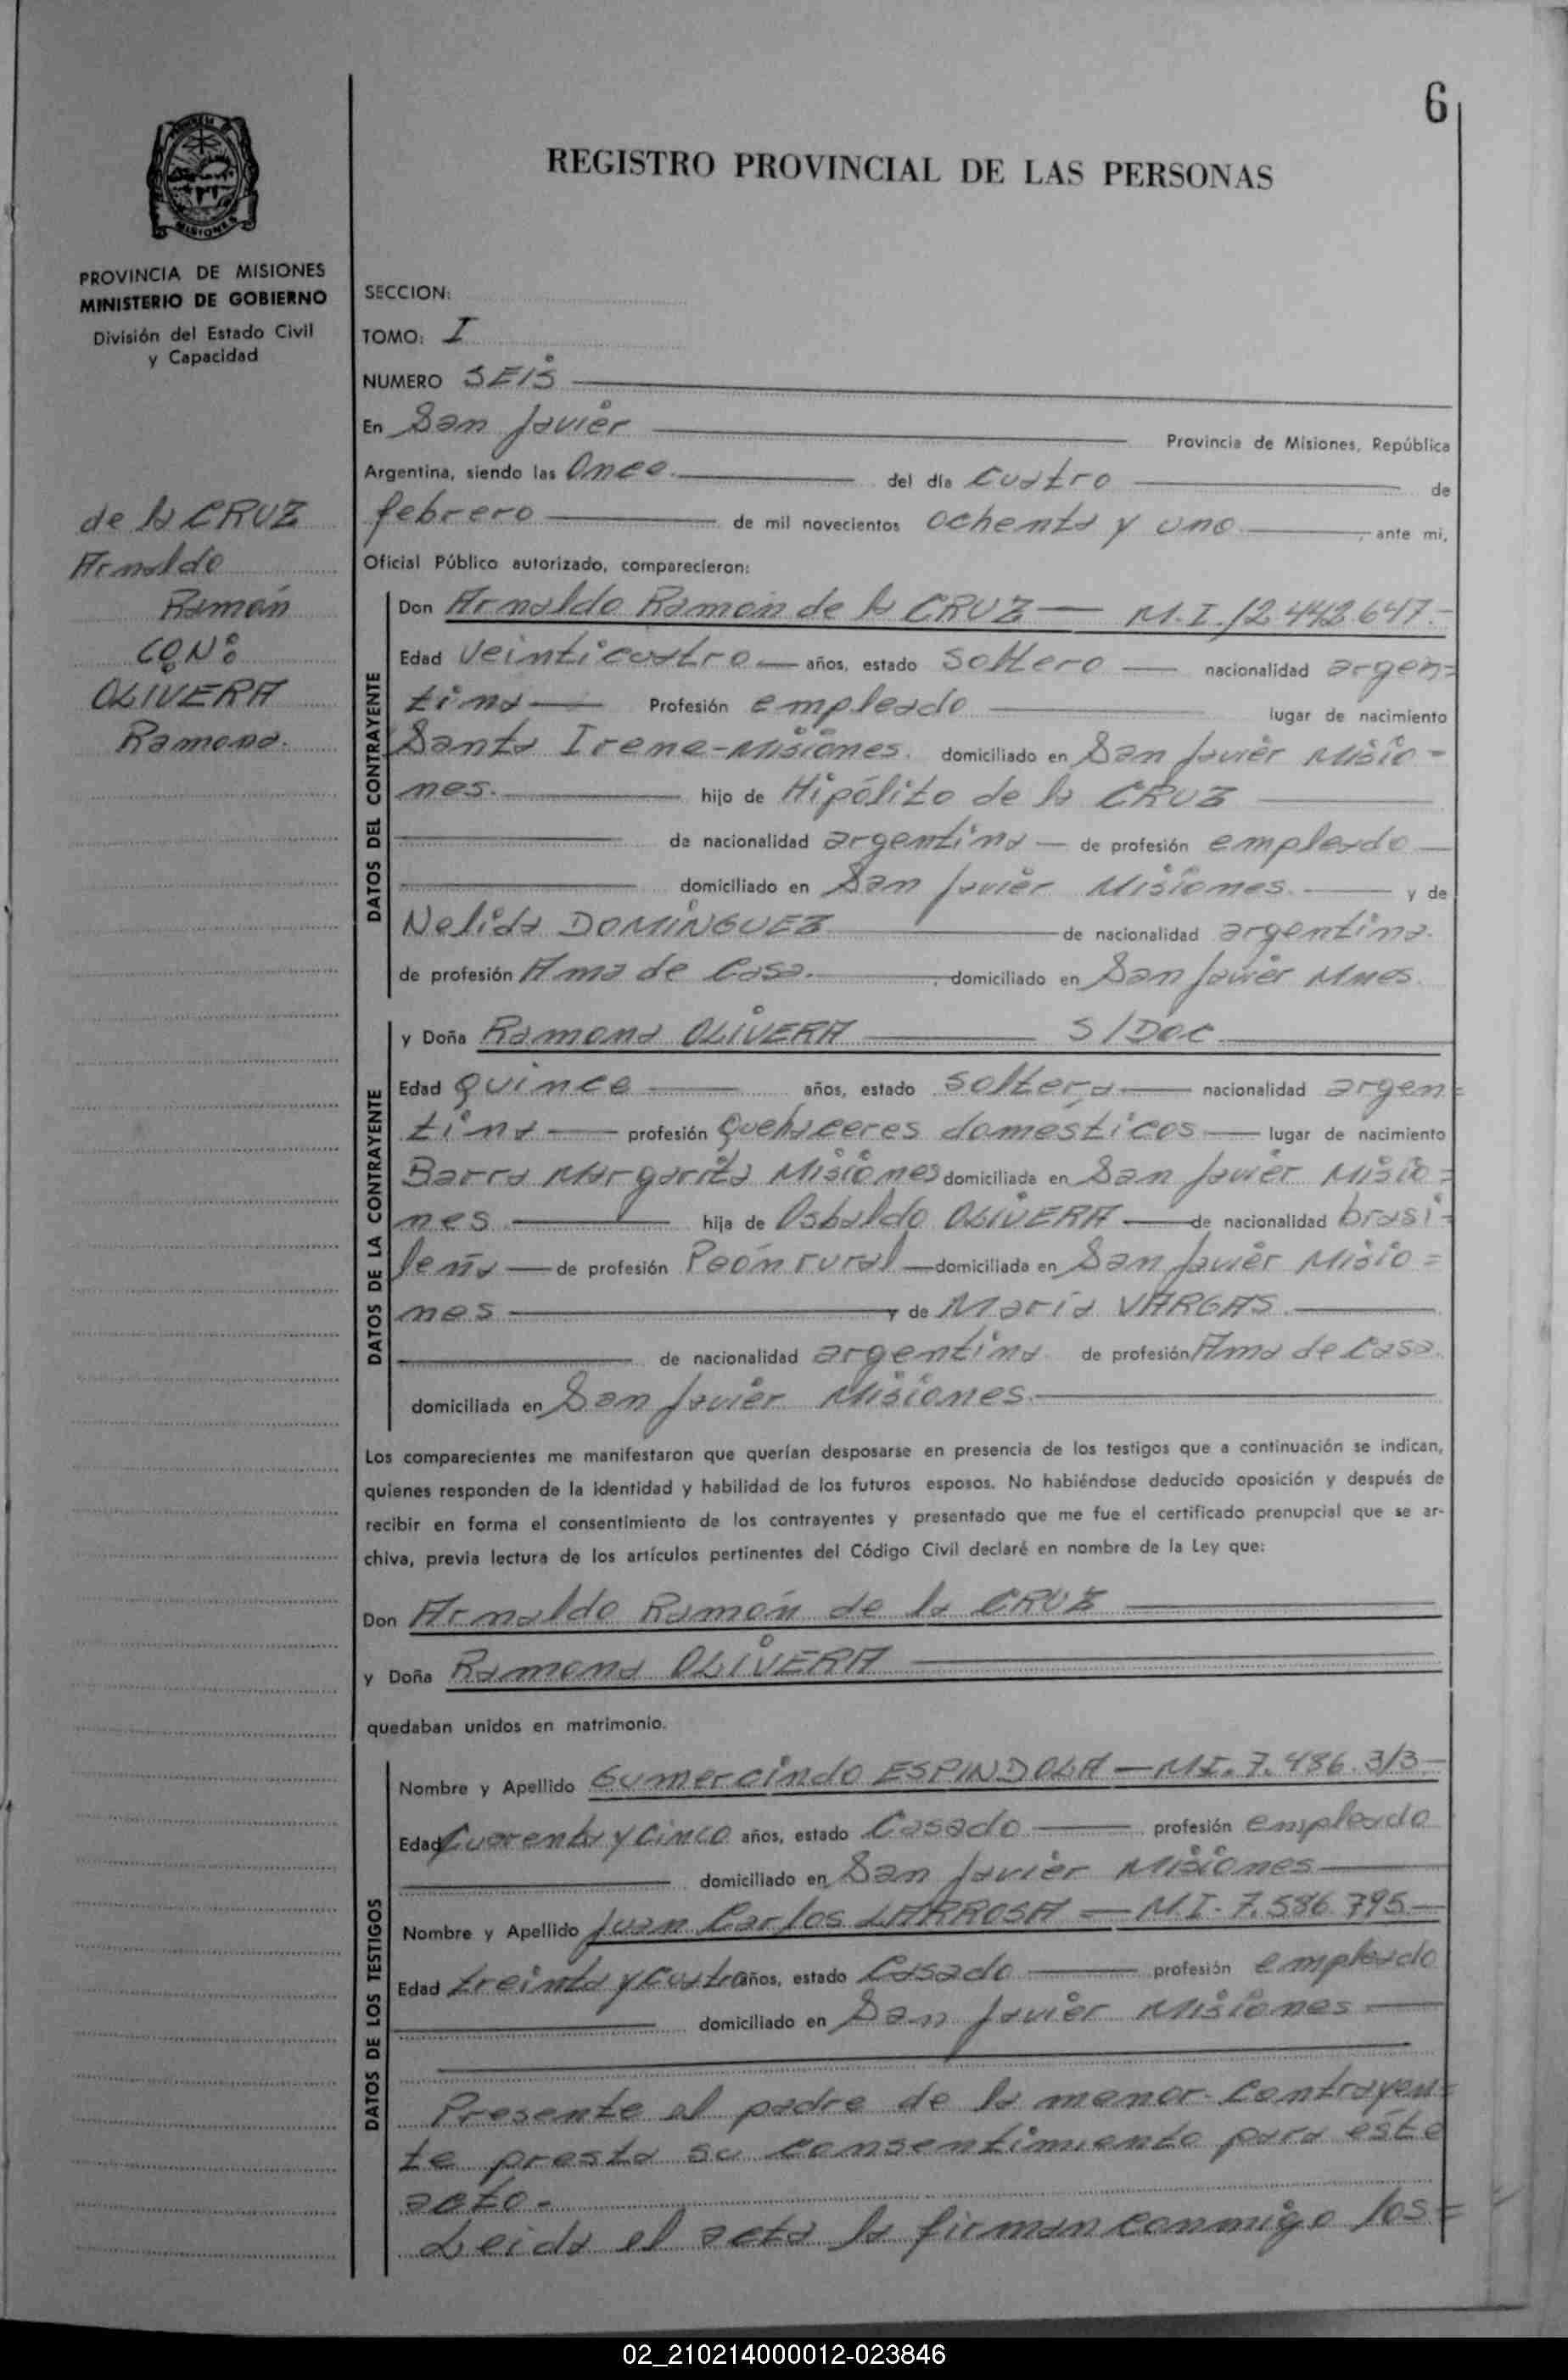 6
REGISTRO PROVINCIAL DE LAS PERSONAS
MISIONES
PROVINCIA DE MISIONES
MINISTERIO DE GOBIERNO
División del Estado Civil
y Capacidad
de la CRUZ
Arnaldo
Ramón
CON:
OLIVERA
Ramona.
SECCION:
TOMO: I
NUMERO SEIS
En San Javier Provincia de Misiones, República
Argentina, siendo las Once del día Cuatro de
febrero de mil novecientos ochenta y uno, ante mi,
Oficial Público autorizado, comparecieron:
DATOS DEL CONTRAYENTE
Don Arnaldo Ramón de la CRUZ — M.I. 12.442.647.-
Edad Veinticuatro — años, estado Soltero — nacionalidad argen=
tina — Profesión empleado lugar de nacimiento
Santa Irene-Misiones. domiciliado en San Javier Misio=
nes. hijo de Hipólito de la CRUZ
de nacionalidad argentina — de profesión empleado
domiciliado en San Javier Misiones. y de
Nelida DOMINGUEZ de nacionalidad argentina.
de profesión Ama de Casa. domiciliado en San Javier Mnes.
DATOS DE LA CONTRAYENTE
y Doña Ramona OLIVERA S/Doc
Edad quince años, estado Soltera — nacionalidad argen=
tina — profesión quehaceres domésticos — lugar de nacimiento
Barra Margarita Misiones domiciliada en San Javier Misio=
nes hija de Osbaldo OLIVERA — de nacionalidad brasi=
leña — de profesión Peón rural — domiciliada en San Javier Misio=
nes y de María VARGAS
de nacionalidad argentina de profesión Ama de Casa.
domiciliada en San Javier Misiones.
Los comparecientes me manifestaron que querían desposarse en presencia de los testigos que a continuación se indican,
quienes responden de la identidad y habilidad de los futuros esposos. No habiéndose deducido oposición y después de
recibir en forma el consentimiento de los contrayentes y presentado que me fue el certificado prenupcial que se ar-
chiva, previa lectura de los artículos pertinentes del Código Civil declaré en nombre de la Ley que:
Don Arnaldo Ramón de la CRUZ
y Doña Ramona OLIVERA
quedaban unidos en matrimonio.
DATOS DE LOS TESTIGOS
Nombre y Apellido Gumercindo ESPINDOLA — M.I. 7.486.313 —
Edad Cuarenta y Cinco años, estado Casado profesión empleado
domiciliado en San Javier Misiones
Nombre y Apellido Juan Carlos LARROSA — M.I. 7.586.795 —
Edad treinta y Cuatro años, estado Casado profesión empleado
domiciliado en San Javier Misiones
Presente el padre de la menor contrayen=
te presta su consentimiento para éste
acto.-
Leida el acta la firman conmigo los=
02_210214000012-023846